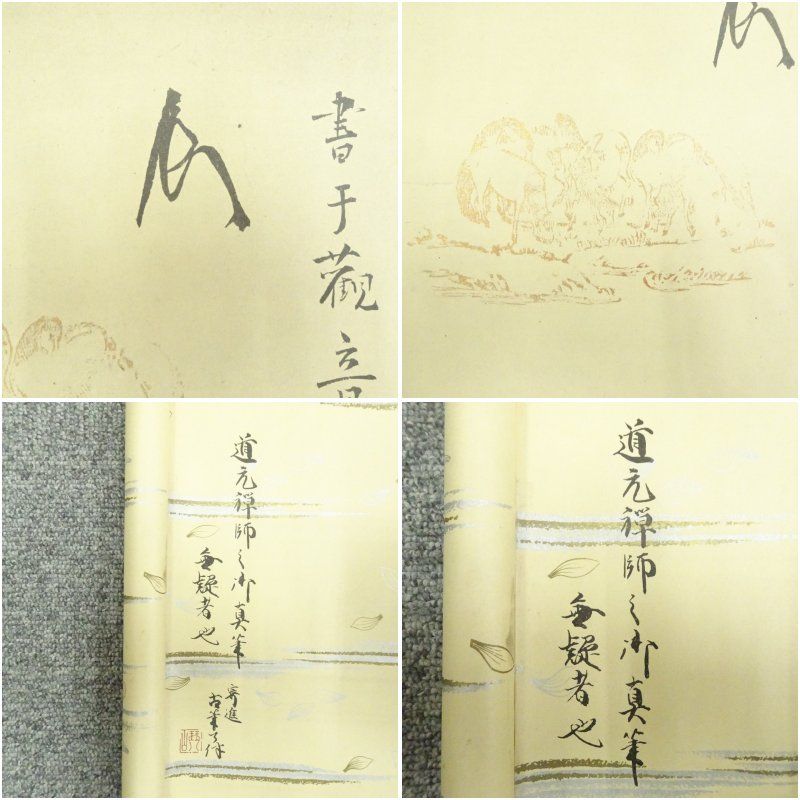 書于觀音
道元禅師之御真筆
無疑者也
寄進
古筆了伴
道元禅師之御真筆
無疑者也